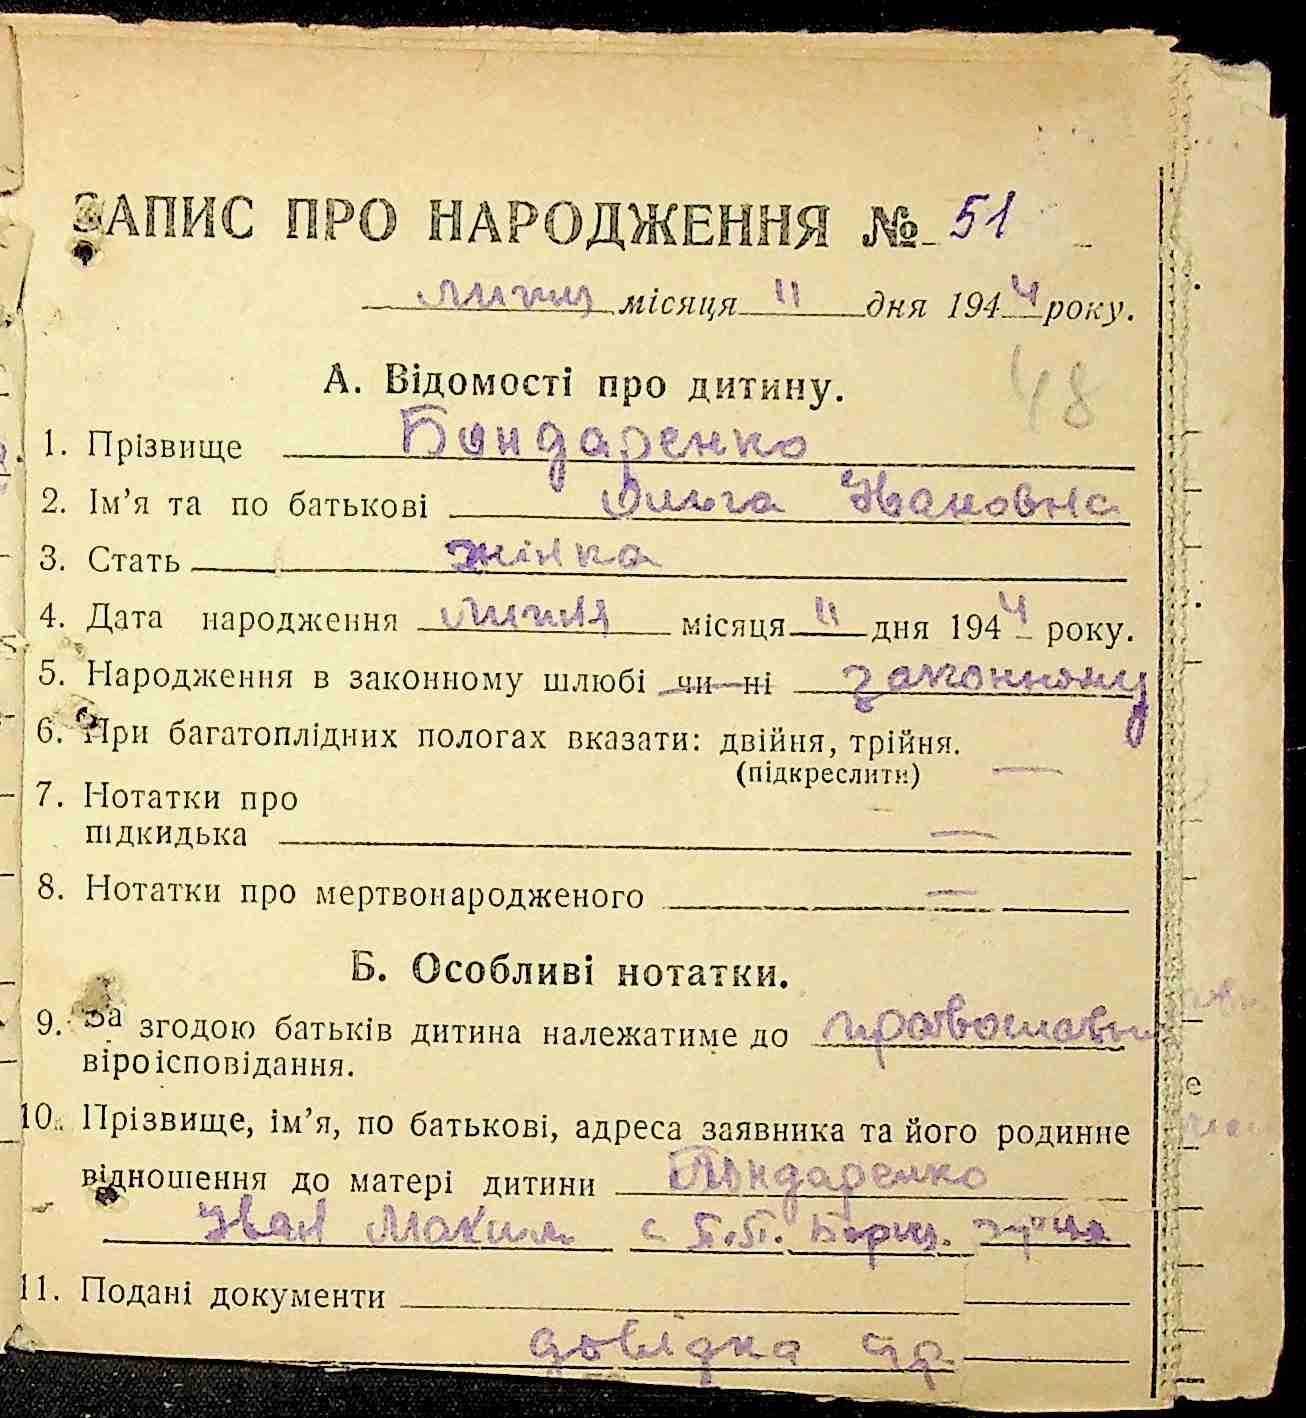 ЗАПИС ПРО НАРОДЖЕННЯ № 51
липня місяця 11 дня 1944 року.
48
А. Відомості про дитину.
1. Прізвище Бондаренко
2. Ім’я та по батькові Ольга Ивановна
3. Стать жінка
4. Дата народження липня місяця 11 дня 1944 року.
5. Народження в законному шлюбі чи ні законному
6. При багатоплідних пологах вказати: двійня, трійня.
(підкреслити) —
7. Нотатки про
підкидька —
8. Нотатки про мертвонародженого —
Б. Особливі нотатки.
9. За згодою батьків дитина належатиме до православн
віроісповідання.
10. Прізвище, ім’я, по батькові, адреса заявника та його родинне
відношення до матері дитини Бондаренко
Иван Маким с Б.Б.
11. Подані документи
довідка